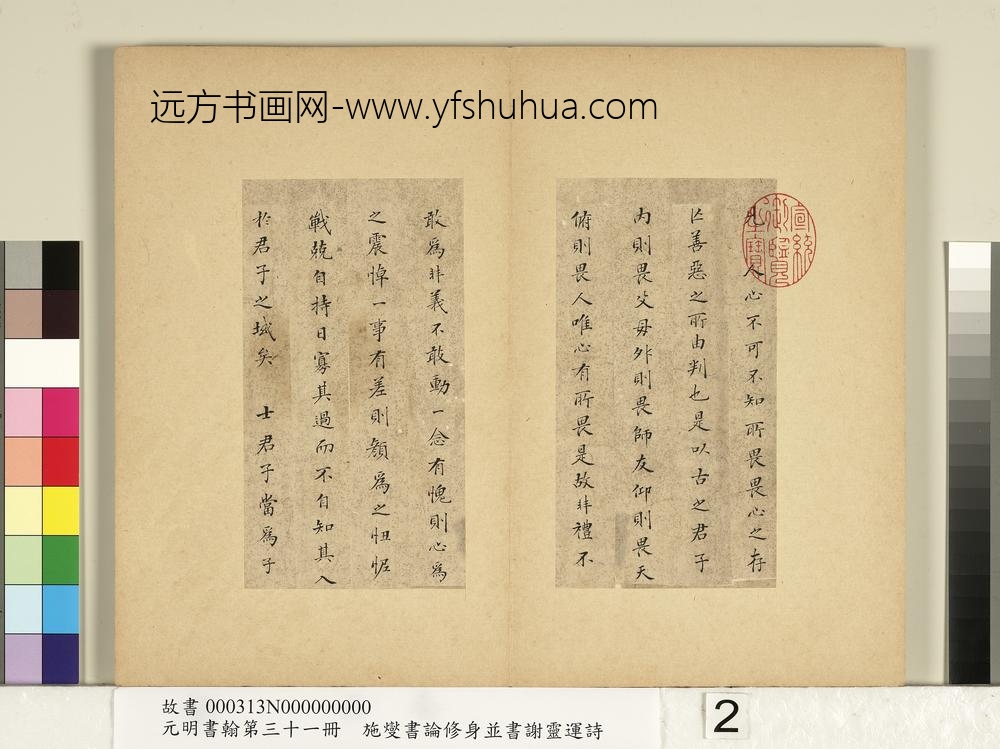 远方书画网-www.yfshuhua.com
宣統御覽之寶
凡人心不可不知所畏畏心之存
亡善惡之所由判也是以古之君子
内則畏父母外則畏師友仰則畏天
俯則畏人唯心有所畏是故非禮不
敢爲非義不敢動一念有愧則心爲
之震悼一事有差則顏爲之忸怩
戰兢自持日寡其過而不自知其入
於君子之域矣 士君子當爲子
故書 000313N000000000
元明書翰第三十一冊 施燮書論修身並書謝靈運詩
2